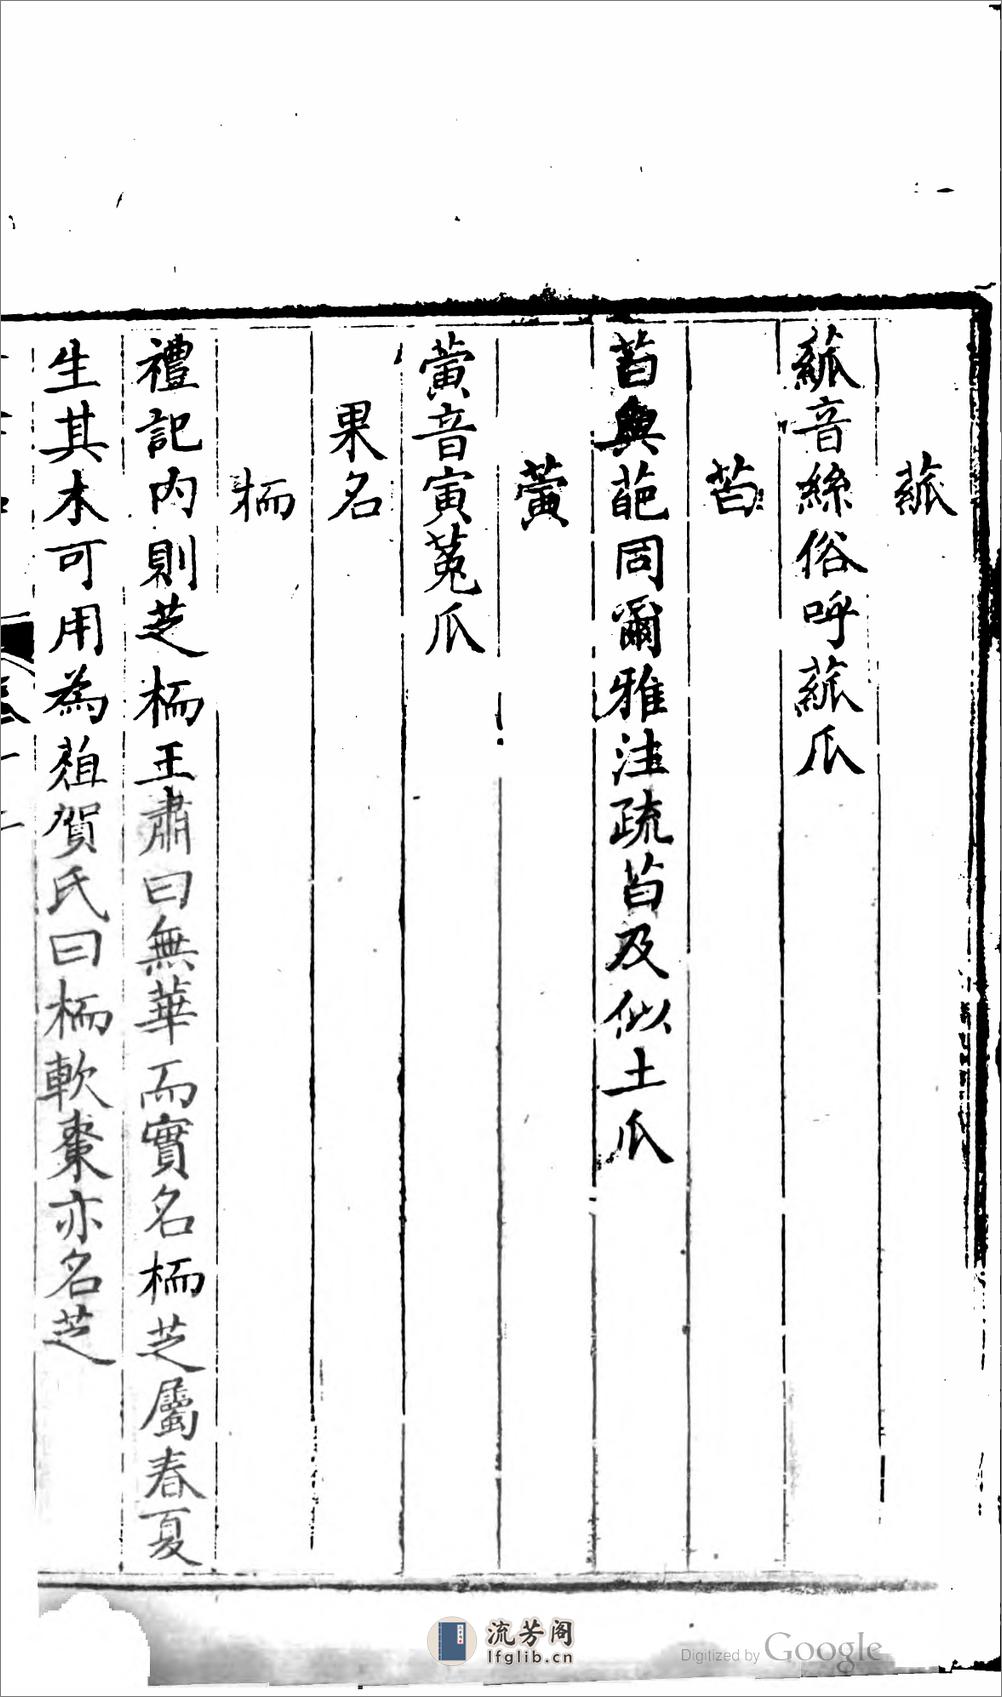 音絲俗呼瓜
苩
苩與葩同爾雅注疏苩及似土瓜
蔩
蔩音寅菟瓜
果名
栭
禮記內則芝栭王肅曰無華而實名栭芝屬春夏
生其木可用為葅賀氏曰栭軟棗亦名芝
流芳阁
lfglib.cn
Digitized by Google